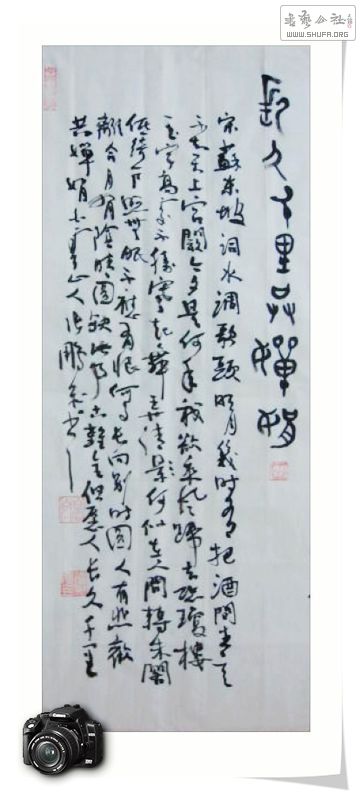 書藝公社
WWW.SHUFA.ORG
長久千里共嬋娟
宋蘇東坡詞水調歌頭明月幾時有把酒問青天
不知天上宮闕今夕是何年我欲乘风歸去恐瓊樓
玉宇高處不勝寒起舞弄清影何似在人間轉朱閣
低綺户照無眠不應有恨何事长向别时圆人有悲歡
離合月有陰晴圓缺此事古難全但愿人长久千里
共嬋娟 山人張鵬 书
Canon